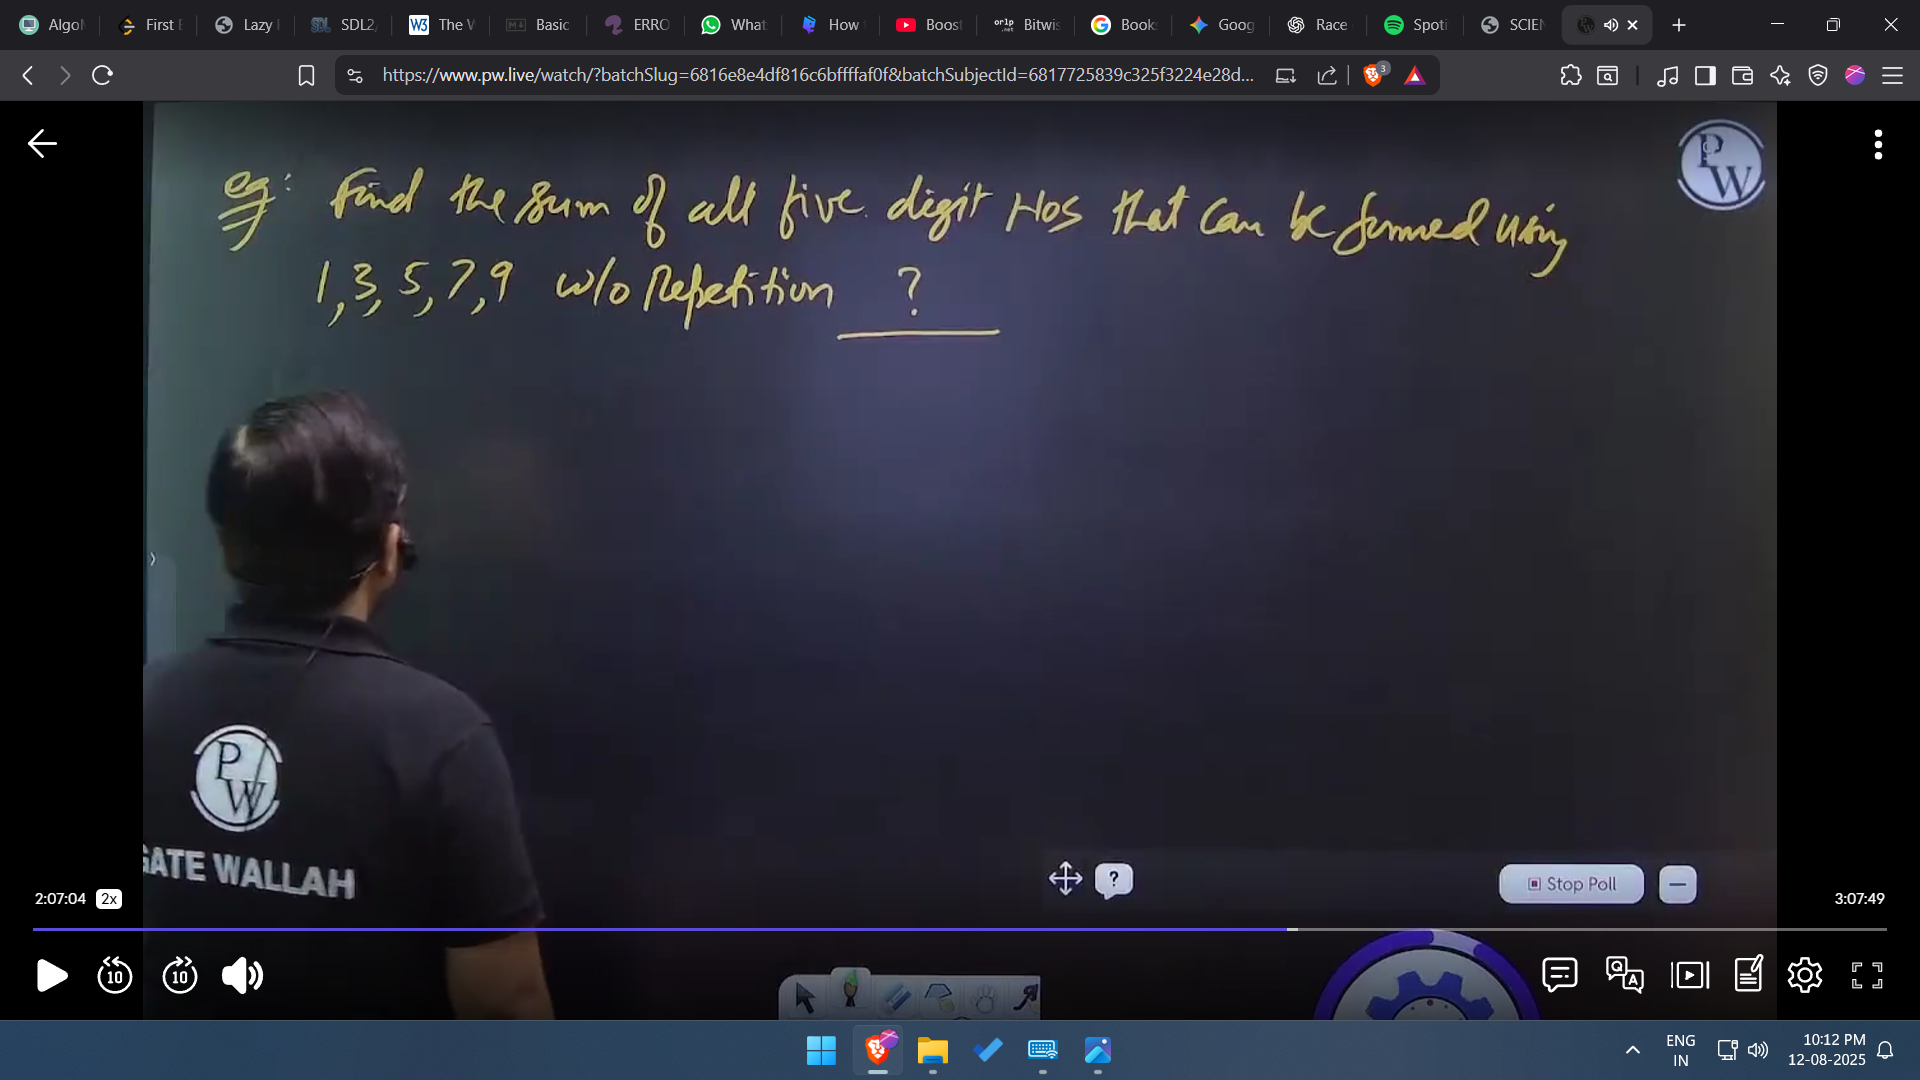 Algo
First E
Lazy
SDL2,
W3 The W
Basic
ERRO
What
How
Boost
orlp .net Bitwis
Book
Goog
Race
Spoti
SCIEN
https://www.pw.live/watch/?batchSlug=6816e8e4df816c6bffffaf0f&batchSubjectId=6817725839c325f3224e28d...
3
PW
eg: Find the sum of all five digit Nos that can be formed using
1, 3, 5, 7, 9 w/o Repetition ?
PW
GATE WALLAH
?
Stop Poll
2:07:04 2x
3:07:49
10
10
Q A
ENG
IN
10:12 PM
12-08-2025